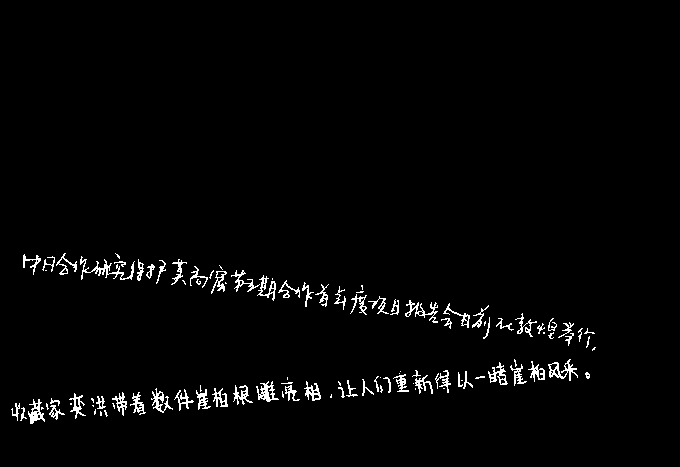 中日合作研究保护莫高窟第五期合作首年度项目报告会日前在敦煌举行,
收藏家奕洪带着数件崖柏根雕亮相,让人们重新得以一睹崖柏风采。